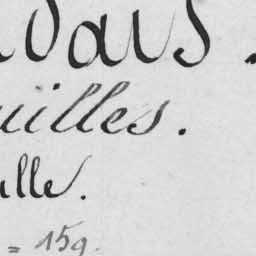 dais.
uilles.
ille.
= 159.